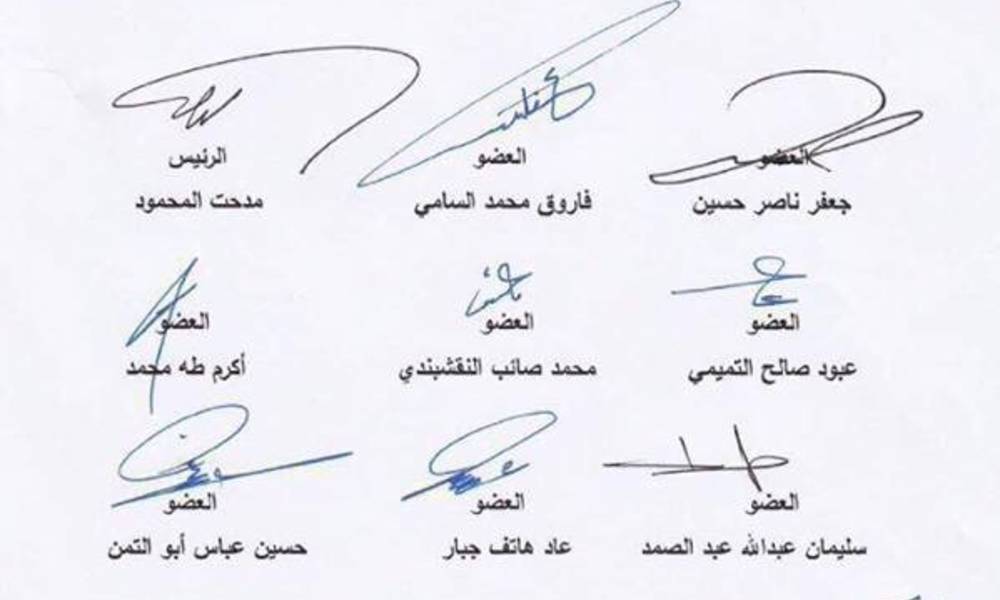 العضو العضو الرئيس
جعفر ناصر حسين فاروق محمد السامي مدحت المحمود
العضو العضو العضو
عبود صالح التميمي محمد صائب النقشبندي أكرم طه محمد
العضو العضو العضو
سليمان عبدالله عبد الصمد عاد هاتف جبار حسين عباس أبو التمن